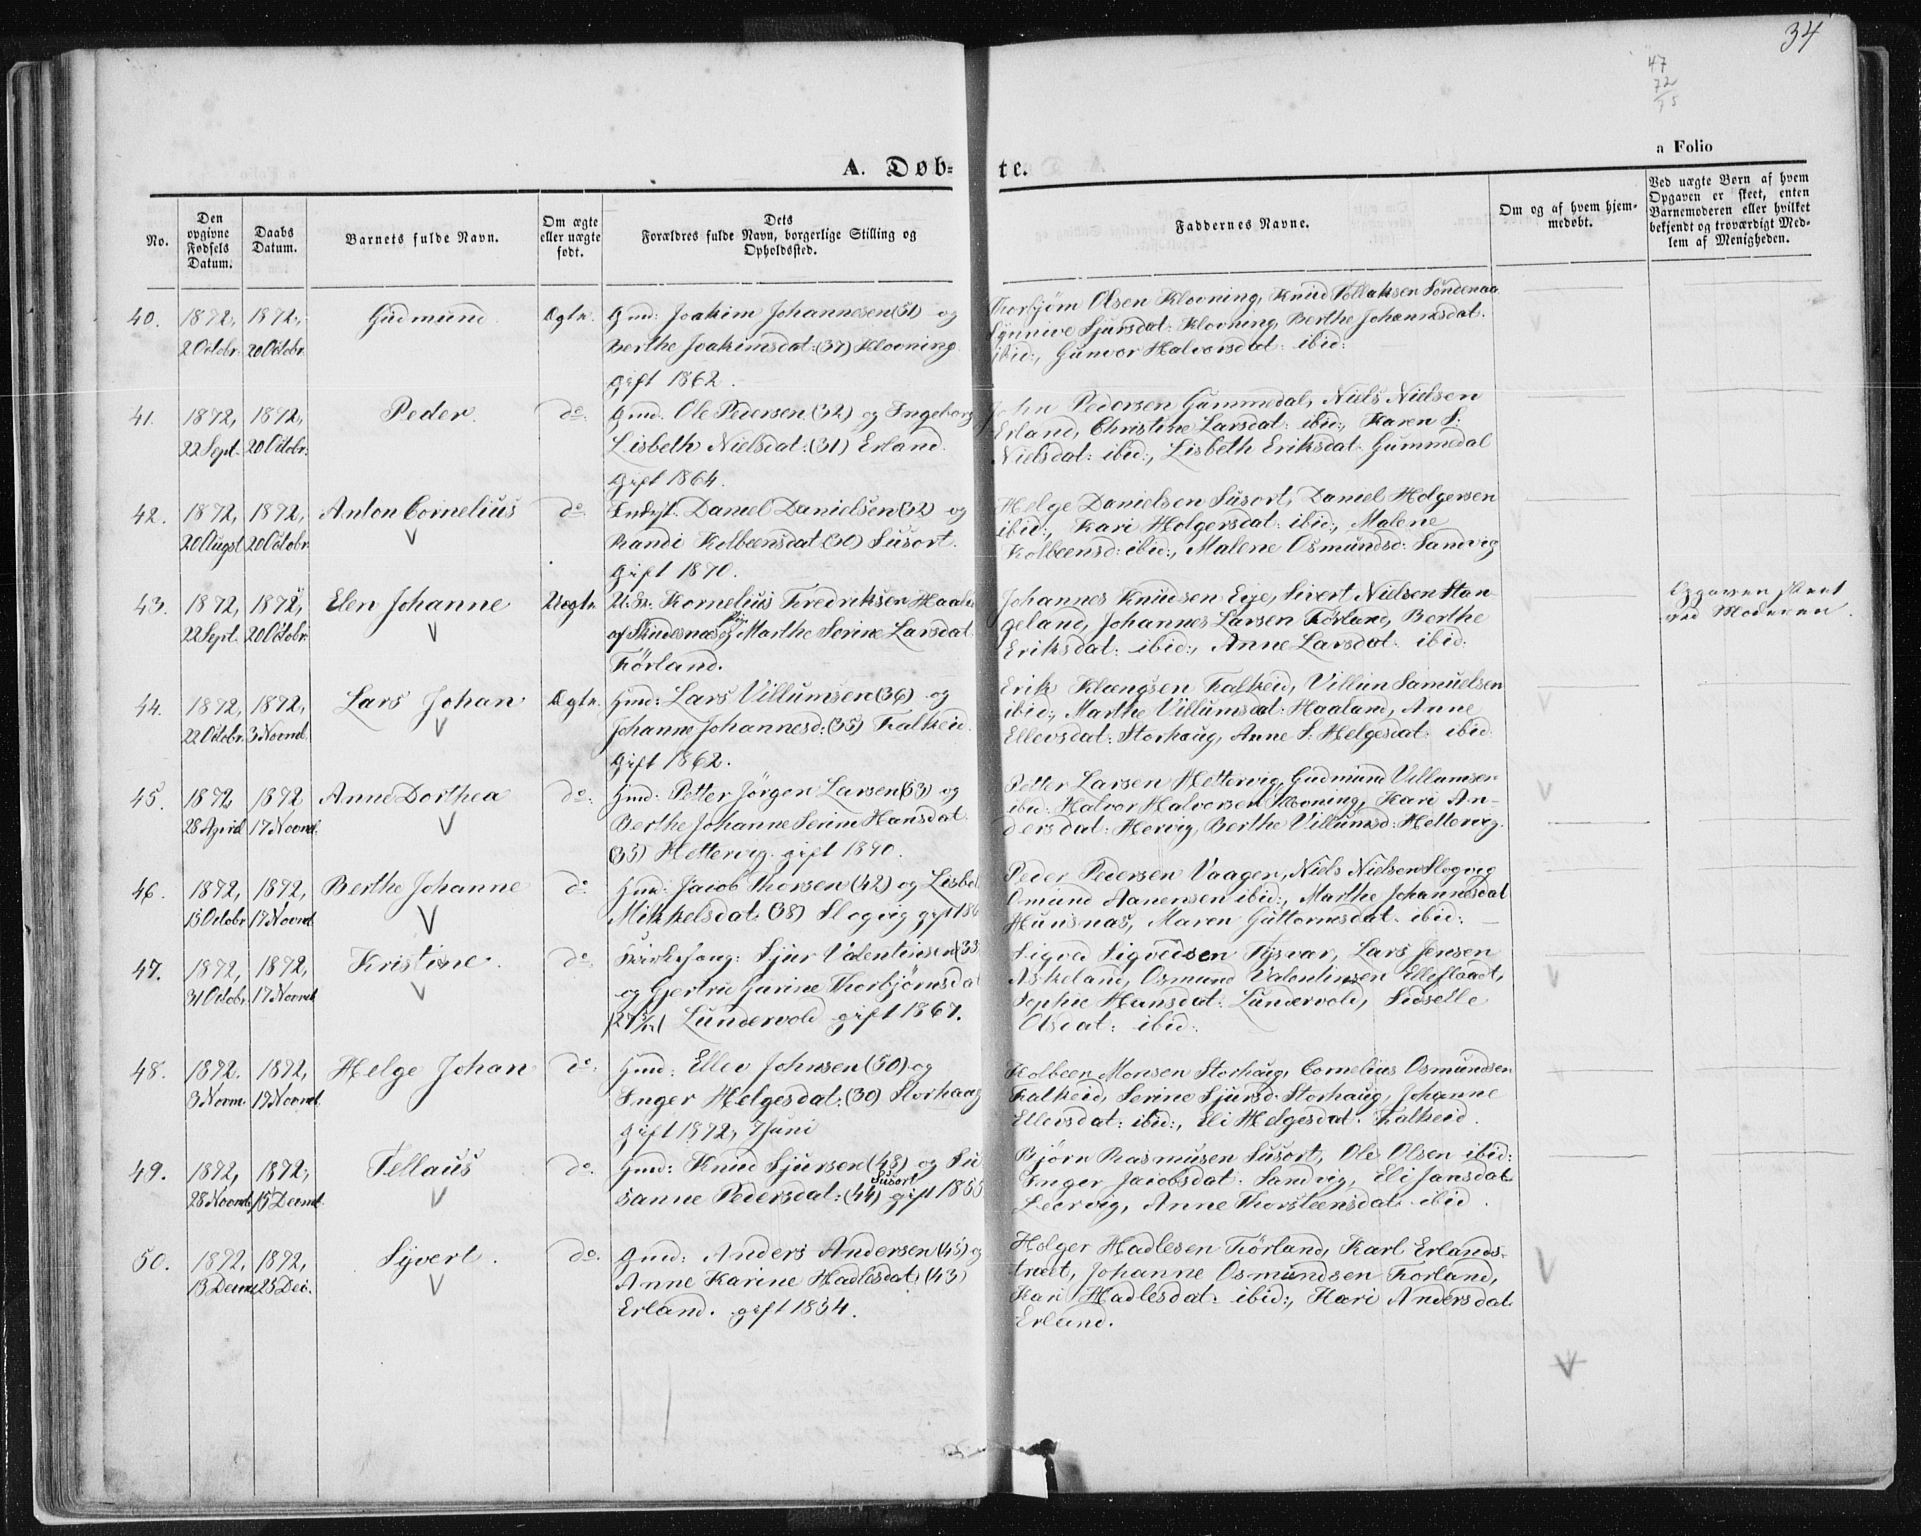 34
47
72
15
a Folio
A. Døb= te.
No.
Den opgivne Fødsels Datum.
Daabs Datum.
Barnets fulde Navn.
Om ægte eller uægte født.
Dets Forældres fulde Navn, borgerlige Stilling og Opholdssted.
Faddernes Navne.
Om og af hvem hjemmedøbt.
Ved uægte Børn af hvem Opgaven er skeet, enten Barnemoderen eller hvilket bekjendt og troværdigt Medlem af Menigheden.
40. 1872, 1872, Gudmund Ægte. Gmd: Joakim Johannesen (51) og
2 Octobr. 20 Octobr. Berthe Joakimsdat: (37) Klovning
gift 1862.
Thorbjørn Olsen Klovning, Knud Tollaksen Søndenaa
Synneve Sjursdat: Klovning, Berthe Johannesdat.
ibid:, Gunvor Halvorsdat: ibid:
41. 1872, 1872, Peder do. Gmd. Ole Pedersen (32) og Ingeborg
22 Sept. 20 Octobr. Lisbeth Nielsdat: (31) Erland.
gift 1864.
John Pedersen Gummedal, Niels Nielsen
Erland, Christine Larsdat: ibid:, Karen S:
Nielsdat: ibid:, Lisbeth Eriksdat: Gummedal
42. 1872, 1872, Anton Cornelius do. Daniel Danielsen (32) og
20 Augst 20 Octobr. Randi Kolbeensdat (30) Susort.
gift 1870.
Helge Danielsen Susort, Daniel Holgersen
ibid:, Kari Holgersdat: ibid:, Malene
Kolbeensd: ibid:, Malene Osmundsd: Sandvig
43. 1872, 1872, Elen Johanne Uægte. Kornelius Fredriksen
22 Sept. 20 Octobr. af Skudesnæs og Pige Marthe Serine Larsdat:
Førland.
Johannes Knudsen Eeje, Sivert Nielsen Stan-
geland, Johannes Larsen Førland, Berthe
Eriksdat: ibid:, Anne Larsdat: ibid:
Opgaven skeet
ved Moderen.
44. 1872, 1872, Lars Johan Ægte. Gmd: Lars Villumsen (36) og
22 Octobr. 3 Novmb. Johanne Johannesd: (35) Falkeid.
gift 1862.
Erik Klængsen Falkeid, Villum Samuelsen
ibid:, Marthe Villumsdat: Haaland, Anne
Ellevsdat: Storhaug, Anne S: Helgesdat: ibid:
45. 1872 1872 Anne Dorthea do. Gmd: Petter Jørgen Larsen (53) og
28 April 17 Novmb. Berthe Johanne Serine Hansdat:
(35) Hettervig. gift 1870.
Petter Larsen Hettervig, Gudmund Villumsen
ibid: Halvor Halvorsen Kloning, Kari An-
dersdat: Hervig, Berthe Villumsd: Hettervig.
46. 1872, 1872, Berthe Johanne do Gmd: Jacob Thorsen (42) og Lisbet
15 Octobr 17 Novmb. Mikkelsdat: (38) Slogvig gift 186
Peder Pedersen Vaagen, Niels Nielsen Slogvig
Omund Aanensen ibid:, Marthe Johannesdat
Hunsnæs, Maren Guttormsdat: ibid:
47. 1872, 1872, Kristine. do. Kirkesang: Sjur Valentinsen (33
31 Octobr. 17 Novmb. og Gjertrud Gurine Thorbjørnsdat
Lundervold gift 1867.
Sigvd Sigvedsen Tysvær, Lars Jensen
Askeland, Osmund Valentinsen Ellefloodt,
Sophie Hansdat: Lundervold, Sidselle
Olsdat: ibid:
48. 1872. 1872, Helge Johan do. Gmd: Ellev Johnsen (50) og
3 Novm. 17 Novmb. Inger Helgesdat: (30) Storhaug
gift 1872, 7 Juni
Kolbeen Monsen Storhaug, Cornelius Osmundsen
Falkeid, Serine Sjursd: Storhaug, Johanne
Ellevsdat: ibid:, Eli Helgesdat: Falkeid.
49. 1872, 1872, Tellaus do. Gmd: Knud Sjursen (48) og Su
28 Novmb. 15 Decmb. sanne Pedersdat: (44) Susort gift 1855
Bjørn Rasmusen Susort, Ole Olsen ibid:
Inger Jacobsdat: Sandvig, Eli Jansdat:
Leervig, Anne Thorsteensdat: ibid.
50. 1872, 1872, Syvert. do. Gmd: Anders Andersen (45) og
13 Decmb. 25 Dec. Anne Karine Hadlesdat: (43)
Erland. gift 1854.
Holger Hadlesen Førland, Karl Erlands-
træet, Johanne Osmundsen Førland,
Kari Hadlesdat: ibid:, Kari Andersdat:
Erland.